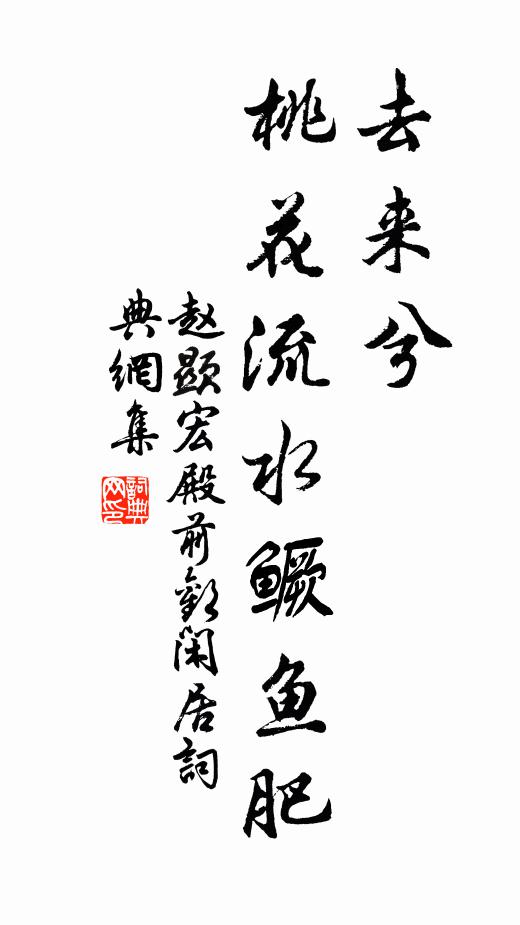 去来兮
桃花流水鳜鱼肥
赵顯宏殿前歡闲居詞
典網集
詞典网印